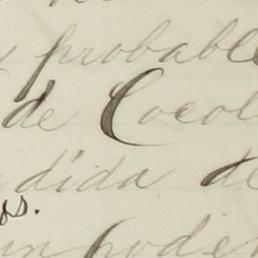 y probable
de Cocol
dida de
os.
un poder